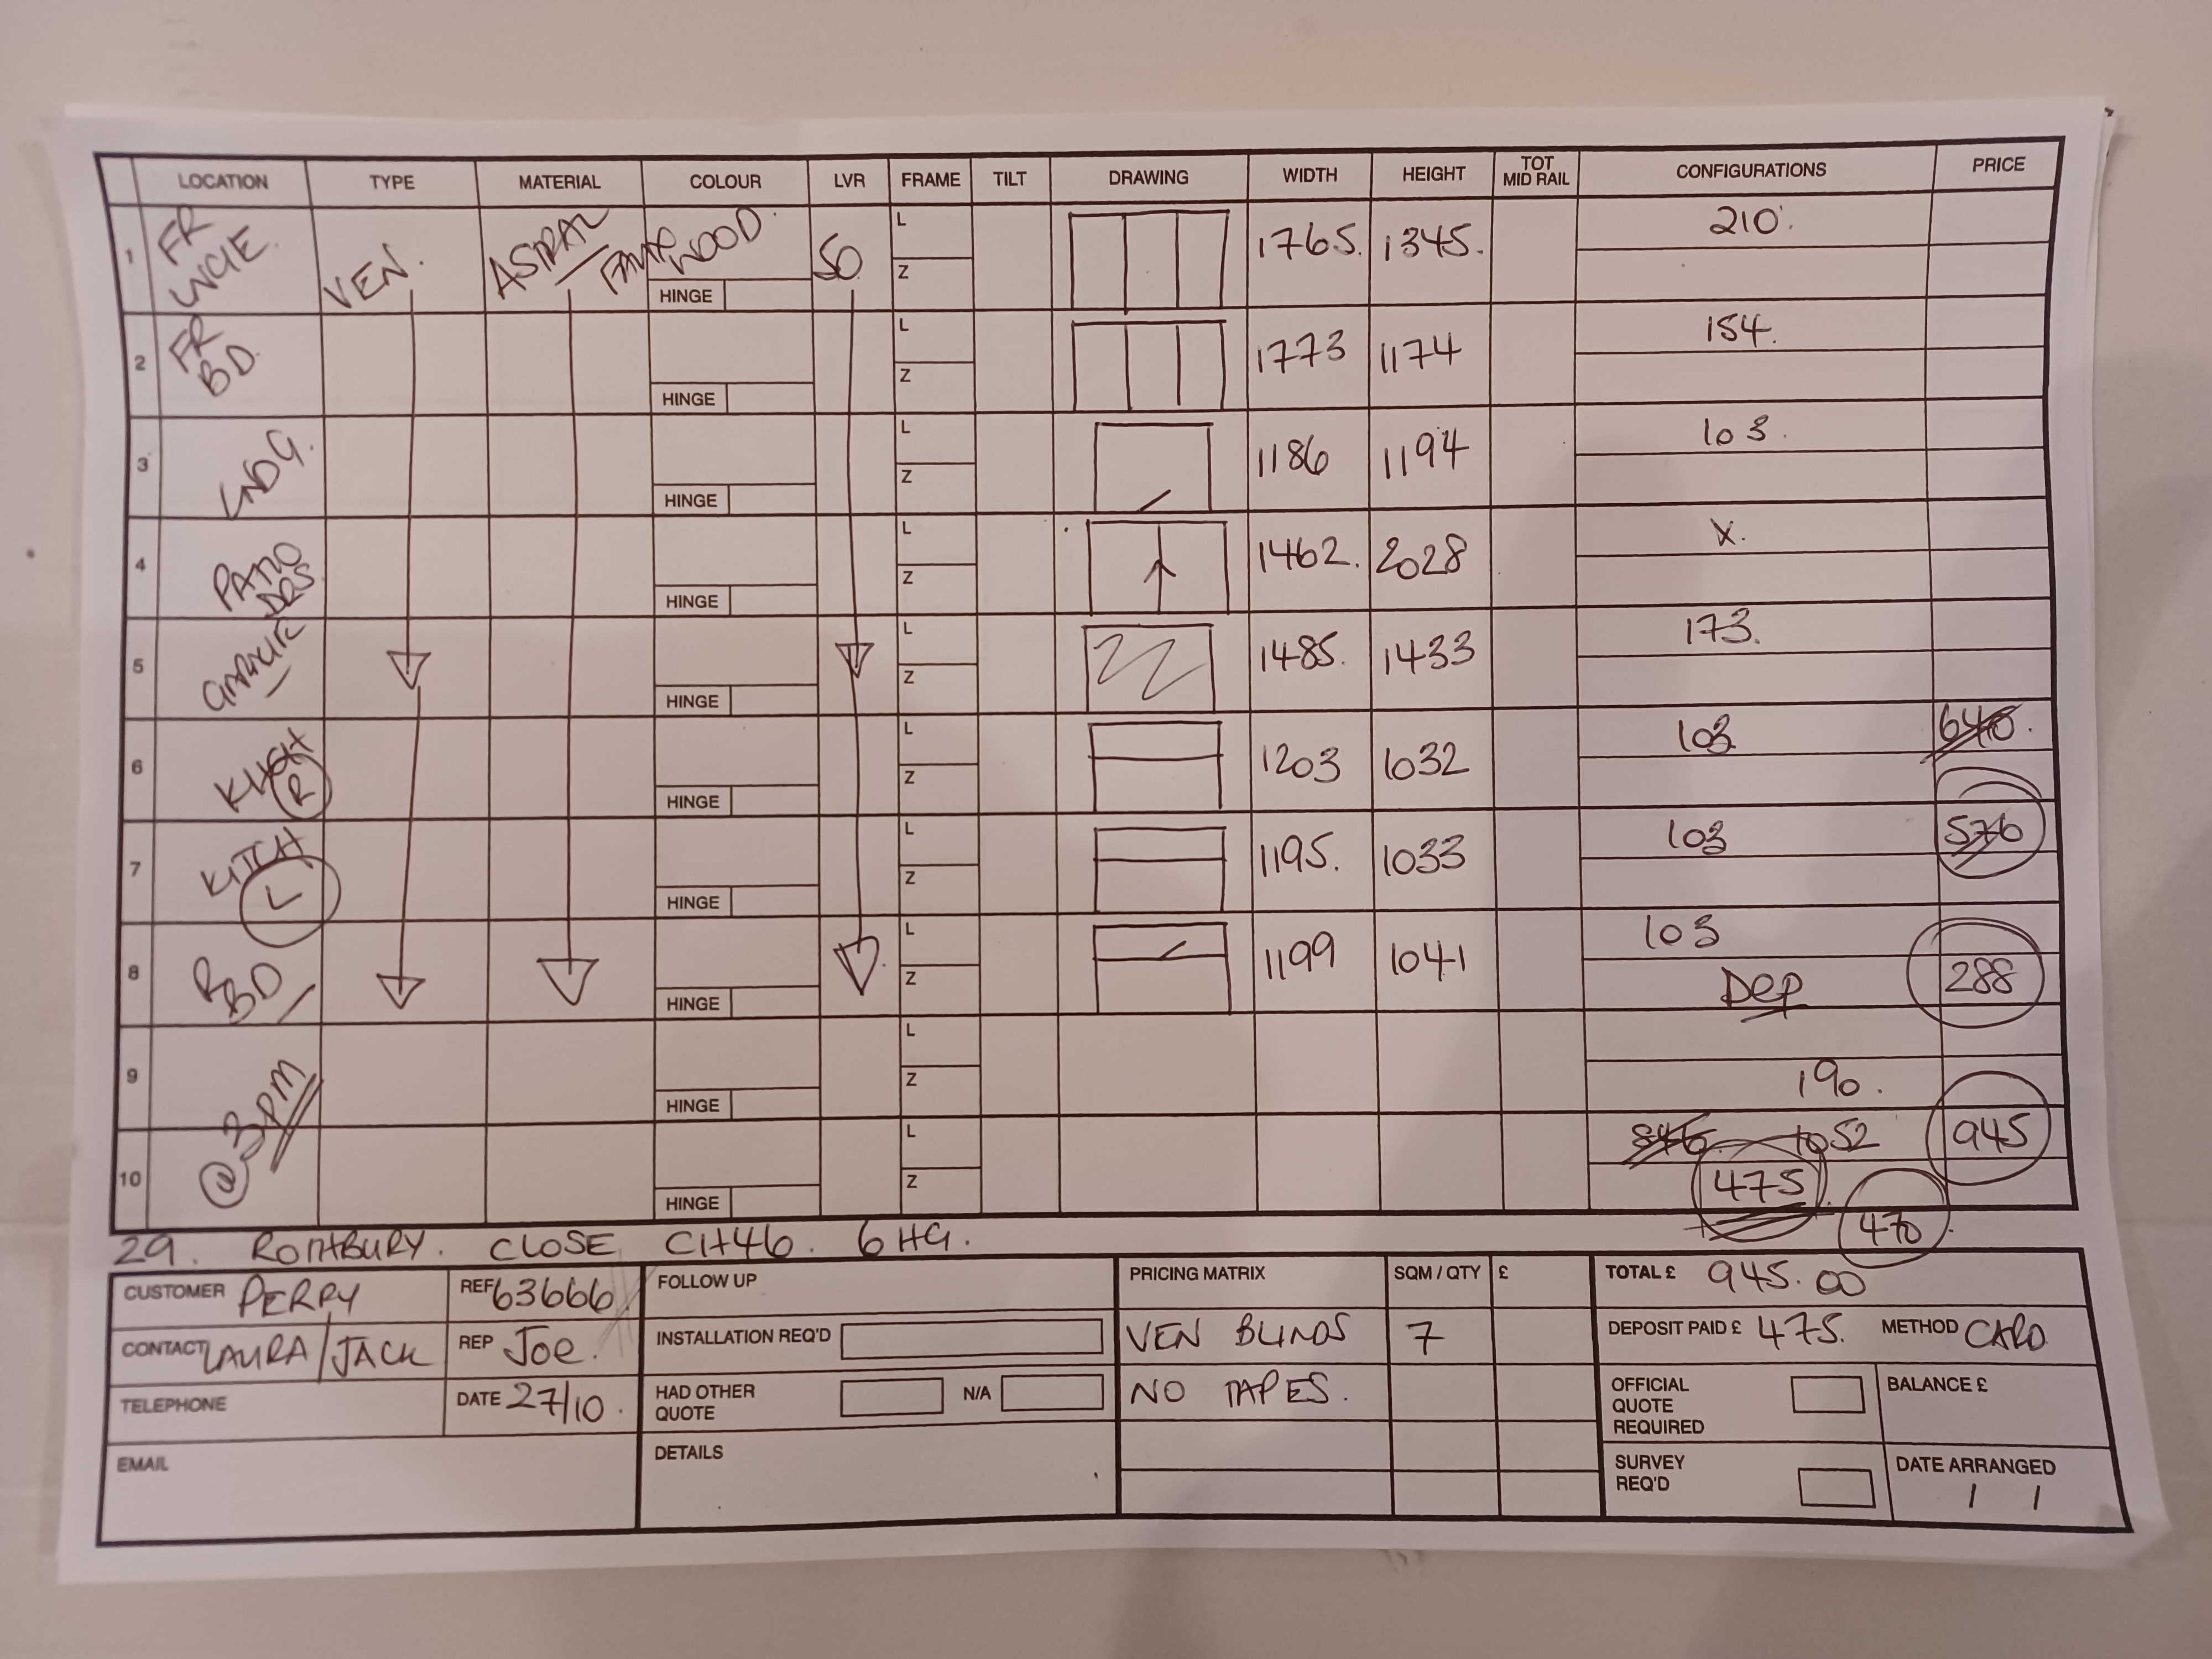 LOCATION TYPE MATERIAL COLOUR LVR FRAME TILT DRAWING WIDTH HEIGHT TOT MID RAIL CONFIGURATIONS PRICE
1 FR LNGE. VEN. ASTRAL / FAUXWOOD. HINGE 50 L Z 1765. 1345. 210.
2 FR BD. HINGE L Z 1773 1174 154.
3 LNDG. HINGE L Z 1186 1194 103.
4 PATIO DRS HINGE L Z 1462. 2028 X.
5 HINGE L Z 1485. 1433 173.
6 KITCH R HINGE L Z 1203 1032 103 640.
7 KITCH L HINGE L Z 1195. 1033 103 576
8 R BD HINGE L Z 1199 1041 103
DEP 288
9 HINGE L Z 190.
@ 3PM
10 HINGE L Z 846 1052 945
475
470
29. ROTHBURY. CLOSE CH46. 6HG.
CUSTOMER PERRY REF 63666 FOLLOW UP PRICING MATRIX SQM / QTY £ TOTAL £ 945.00
CONTACT LAURA/JACK REP Joe. INSTALLATION REQ'D VEN BLINDS 7 DEPOSIT PAID £ 475. METHOD CARD
TELEPHONE DATE 27/10. HAD OTHER QUOTE N/A NO TAPES. OFFICIAL QUOTE REQUIRED BALANCE £
EMAIL DETAILS SURVEY REQ'D DATE ARRANGED / /